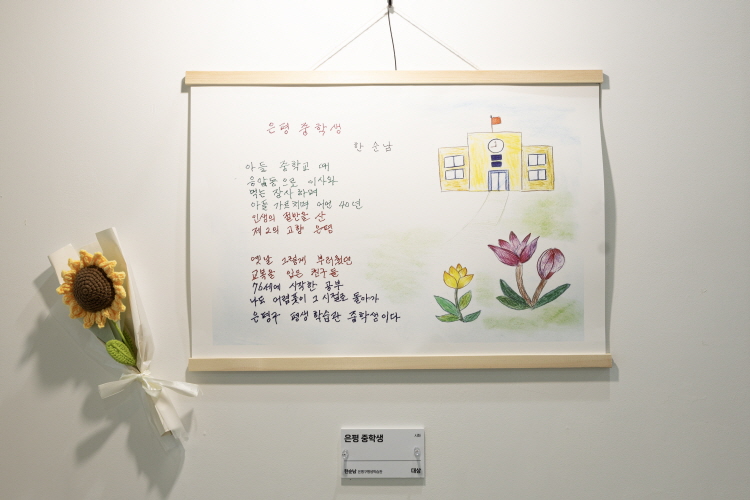 은평 중학생
한 순남
아들 중학교 때
응암동으로 이사와
먹는 장사하며
아들 가르치며 어언 40년
인생의 절반을 산
제2의 고향 은평
옛날 그렇게 부러웠던
교복을 입은 친구들
76세에 시작한 공부
나도 어렴풋이 그 시절로 돌아가
은평구 평생학습관 중학생이다
은평 중학생
시화
한순남 은평구평생학습관
대상